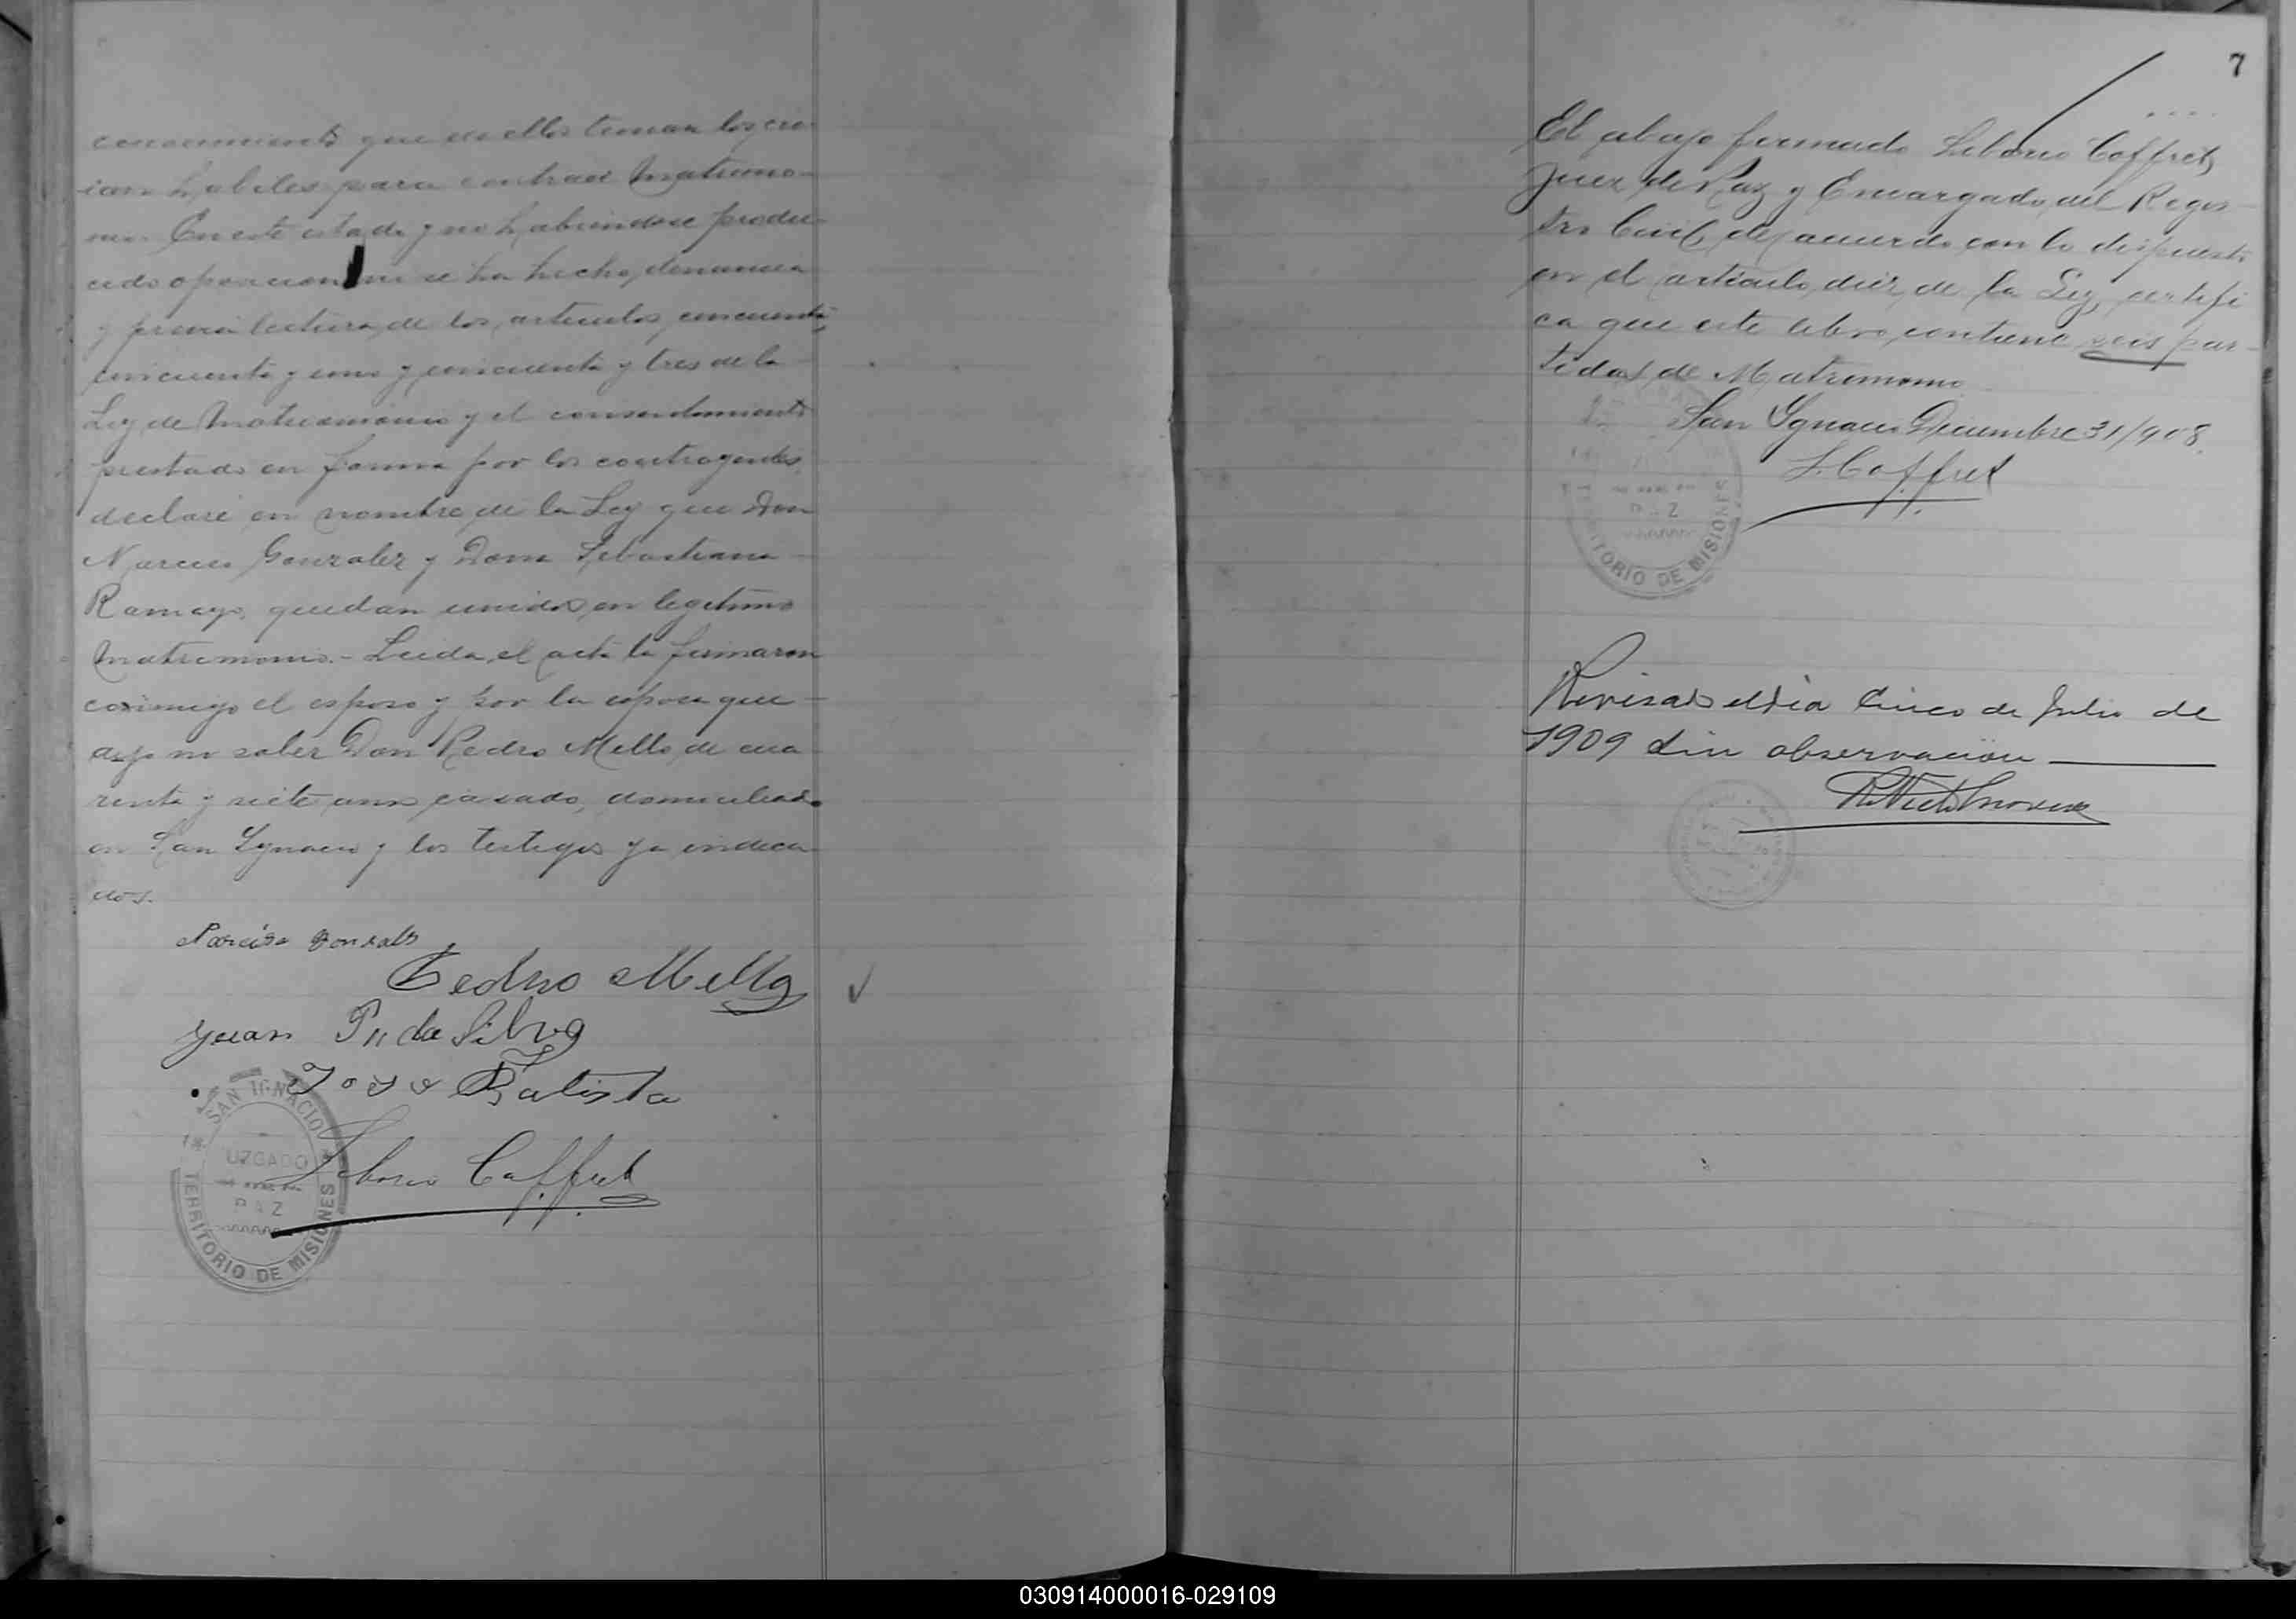 conocimiento que de ellos tenian los cre
ian habiles para contraer Matrimo-
nio. En este estado y no habiendose produ-
cido oposicion ni se ha hecho denuncia
y previa lectura de los articulos cincuenta,
cincuenta y uno y cincuenta y tres de la
Ley de Matrimonio y el consentimiento
prestado en forma por los contrayentes,
declaré en nombre de la Ley que Don
Narciso Gonzalez y Doña Sebastiana
Ramayo, quedan unidos en legitimo
Matrimonio.- Leida el acta la firmaron
conmigo el esposo y por la esposa que
dijo no saber Don Pedro Mello de cua
renta y siete años casado, domiciliado
en San Ygnacio y los testigos ya indica
dos.
Narciso Gonsals
Pedro Mello
Juan P. da Silva
João Batista
Liborio Caffret
SAN IGNACIO
JUZGADO
PAZ
TERRITORIO DE MISIONES
7
El abajo firmado Liborio Caffret,
Juez de Paz y Encargado del Regis-
tro Civil, de acuerdo con lo dispuesto
en el articulo diez de la Ley, certifi
ca que este libro contiene seis par-
tidas de Matrimonio
San Ygnacio Diciembre 31/908.
L. Caffret
PAZ
TERRITORIO DE MISIONES
Revisado el dia cinco de Julio de
1909 sin observacion
030914000016-029109